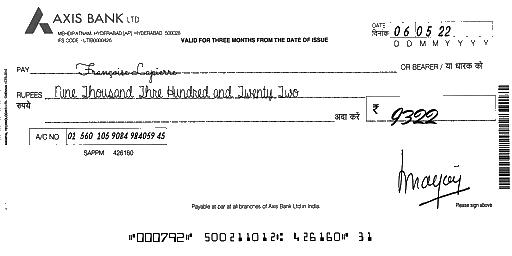 AXIS BANK LTD
MEHDIPATNAM, HYDERABAD [AP] HYDERABAD 500028
IFS CODE - UTIB0000426
VALID FOR THREE MONTHS FROM THE DATE OF ISSUE
DATE
दिनांक 06 05 22
D D M M Y Y Y Y
PAY Françoise Lapierre OR BEARER / या धारक को
RUPEES Nine Thousand Thre Hundred and Twenty Two
रुपये अदा करें ₹ 9322
A/C NO 01 560 105 9084 984059 45
SAPPM 426160
Payable at par at all branches of Axis Bank Ltd in India.
Please sign above
"000792" 500211012: 426160" 31